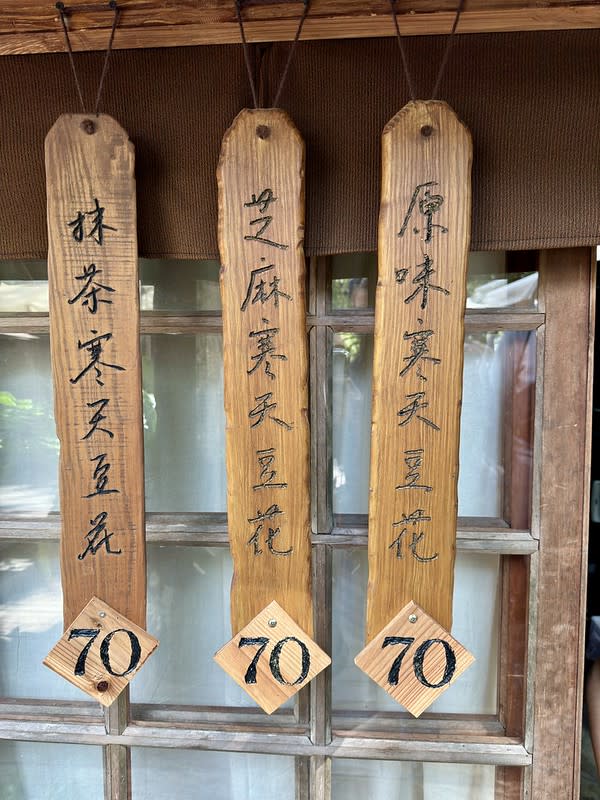 原味寒天豆花
70
芝麻寒天豆花
70
抹茶寒天豆花
70